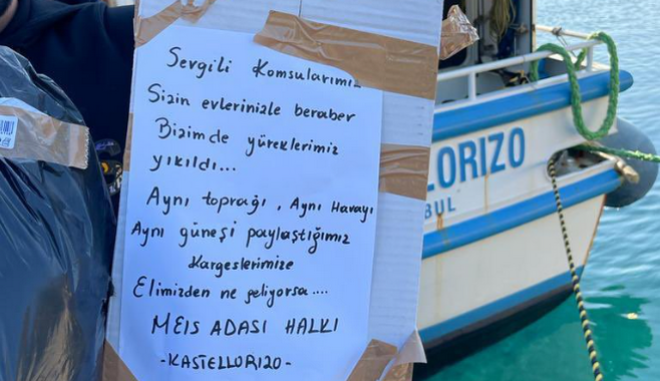 Sevgili Komsularımız
Sizin evlerinizle beraber
Bizimde yüreklerimiz
yıkıldı...
Aynı toprağı , Aynı Havayı
Aynı güneşi paylaştığımız
Kargeslerimize
Elimizden ne geliyorsa....
MEIS ADASI HALKI
-KASTELLORIZO-
LORIZO
BUL